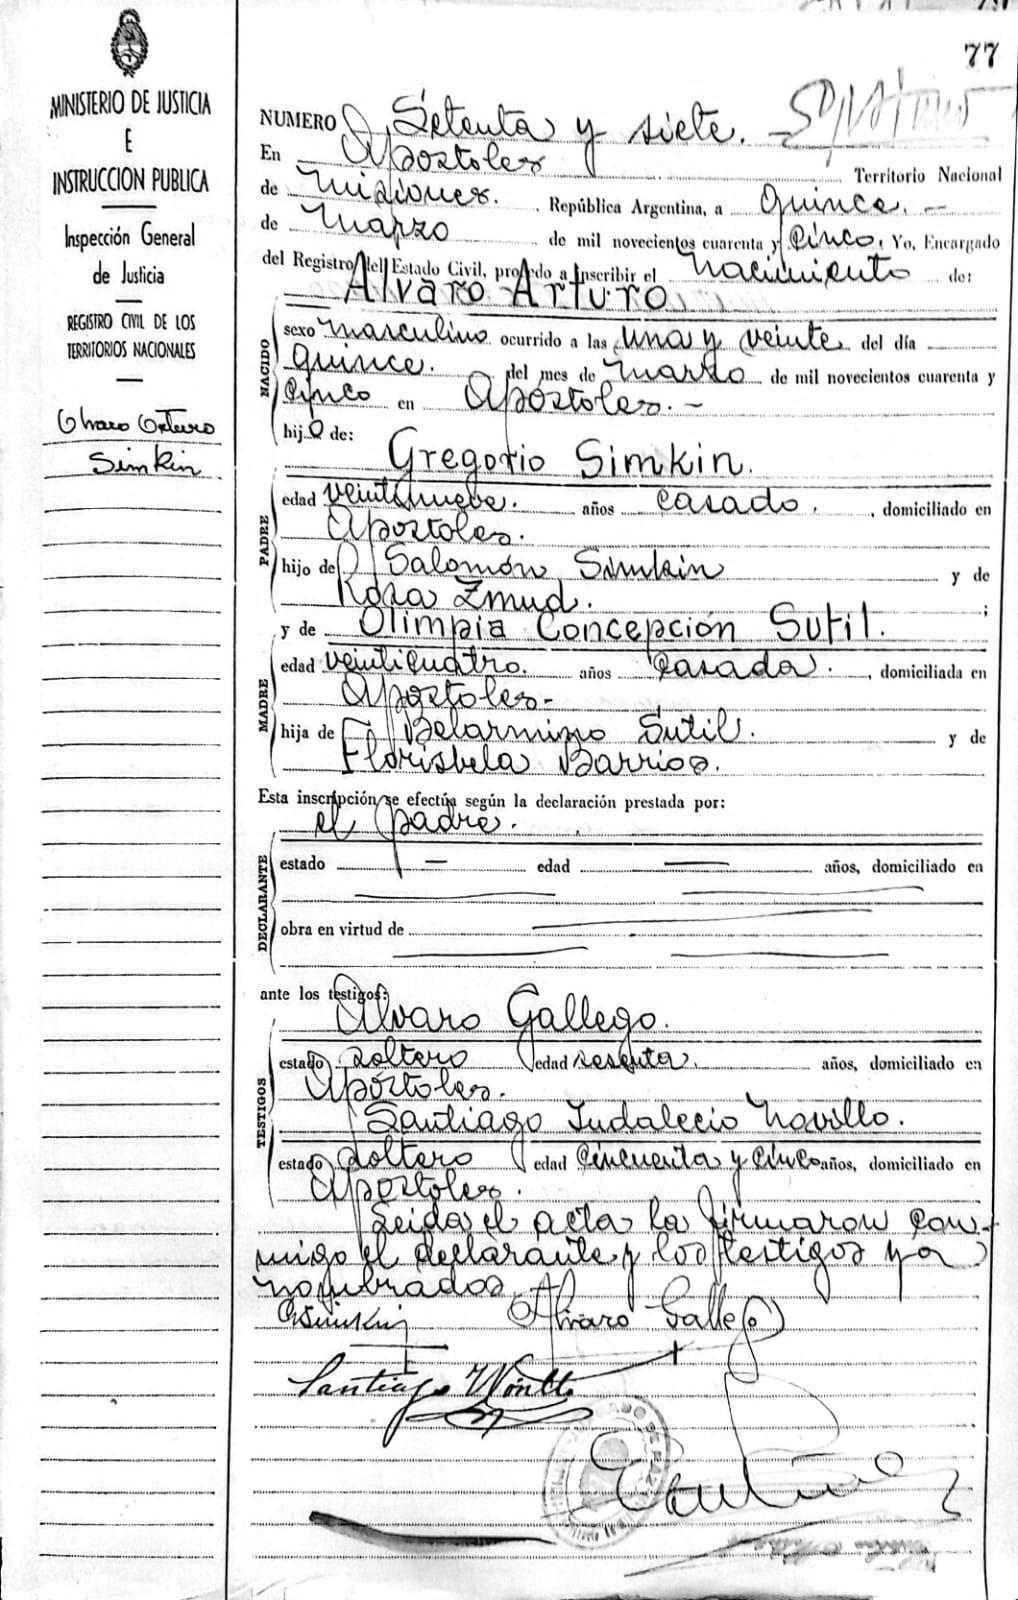 77
MINISTERIO DE JUSTICIA
E
INSTRUCCION PUBLICA
Inspección General
de Justicia
REGISTRO CIVIL DE LOS
TERRITORIOS NACIONALES
Alvaro Arturo
Simkin
NUMERO Setenta y siete.
En Apostoles Territorio Nacional
de Misiones. República Argentina, a quince.-
de Marzo de mil novecientos cuarenta y cinco. Yo, Encargado
del Registro del Estado Civil, procedo a inscribir el nacimiento de:
Alvaro Arturo
NACIDO
sexo masculino ocurrido a las una y veinte del día
quince. del mes de Marzo de mil novecientos cuarenta y
cinco en Apóstoles.-
hijo de:
Gregorio Simkin.
PADRE
edad veintinueve. años casado. , domiciliado en
Apostoles.
hijo de Salomón Simkin y de
Rosa Zmud. ;
y de Olimpia Concepción Sutil.
MADRE
edad veinticuatro. años casada. , domiciliada en
Apostoles-
hija de Belarmino Sutil. y de
Florisbela Barrios.
Esta inscripción se efectúa según la declaración prestada por:
el padre.
DECLARANTE
estado — edad — años, domiciliado en
obra en virtud de
ante los testigos:
Alvaro Gallego.
TESTIGOS
estado soltero edad sesenta. años, domiciliado en
Apóstoles.
Santiago Indalecio Novillo.
estado soltero edad cincuenta y cinco años, domiciliado en
Apóstoles.
Leida el acta la firmaron con-
migo el declarante y los testigos ya
nombrados.
GSimkin Alvaro Gallego
Santiago